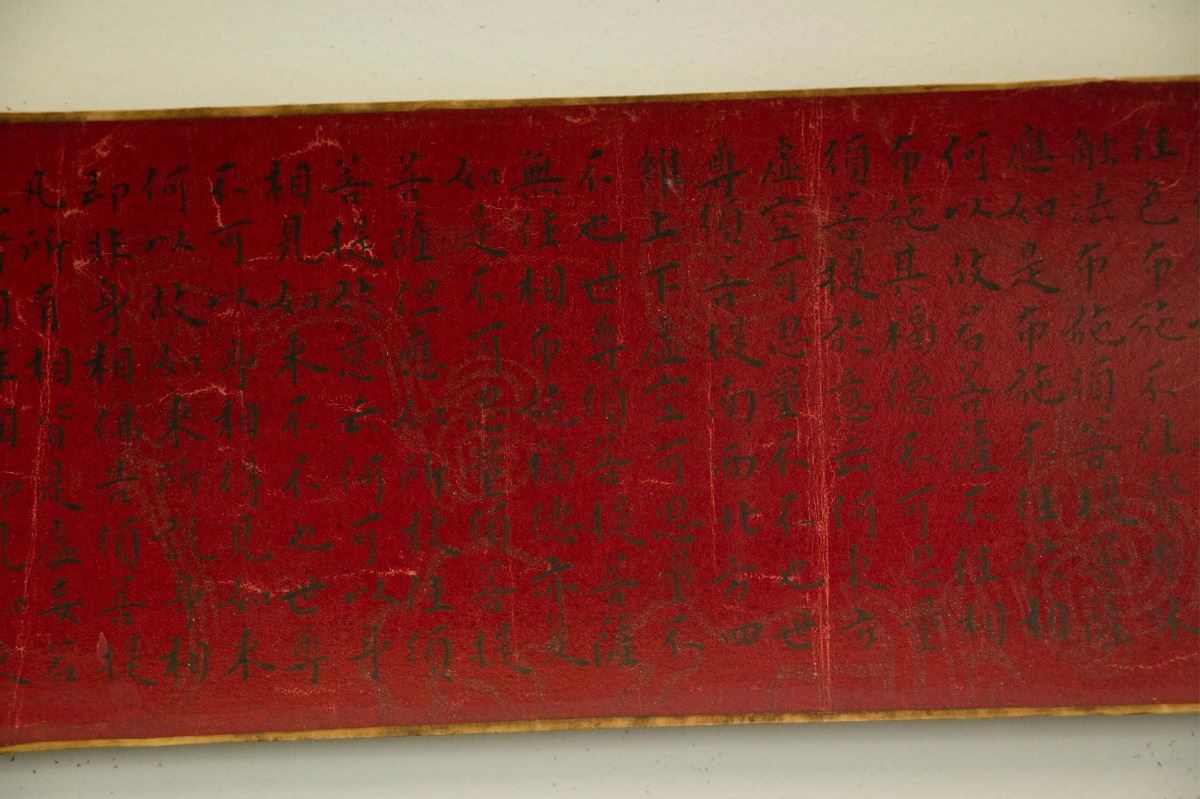 住色布施不住聲香味
觸法布施須菩提菩薩
應如是布施不住於相
何以故若菩薩不住相
布施其福德不可思量
須菩提於意云何東方
虛空可思量不不也世
尊須菩提南西北方四
維上下虛空可思量不
不也世尊須菩提菩薩
無住相布施福德亦復
如是不可思量須菩提
菩薩但應如所教住須
菩提於意云何可以身
相見如來不不也世尊
不可以身相得見如來
何以故如來所說身相
即非身相佛告須菩提
凡所有相皆是虛妄若